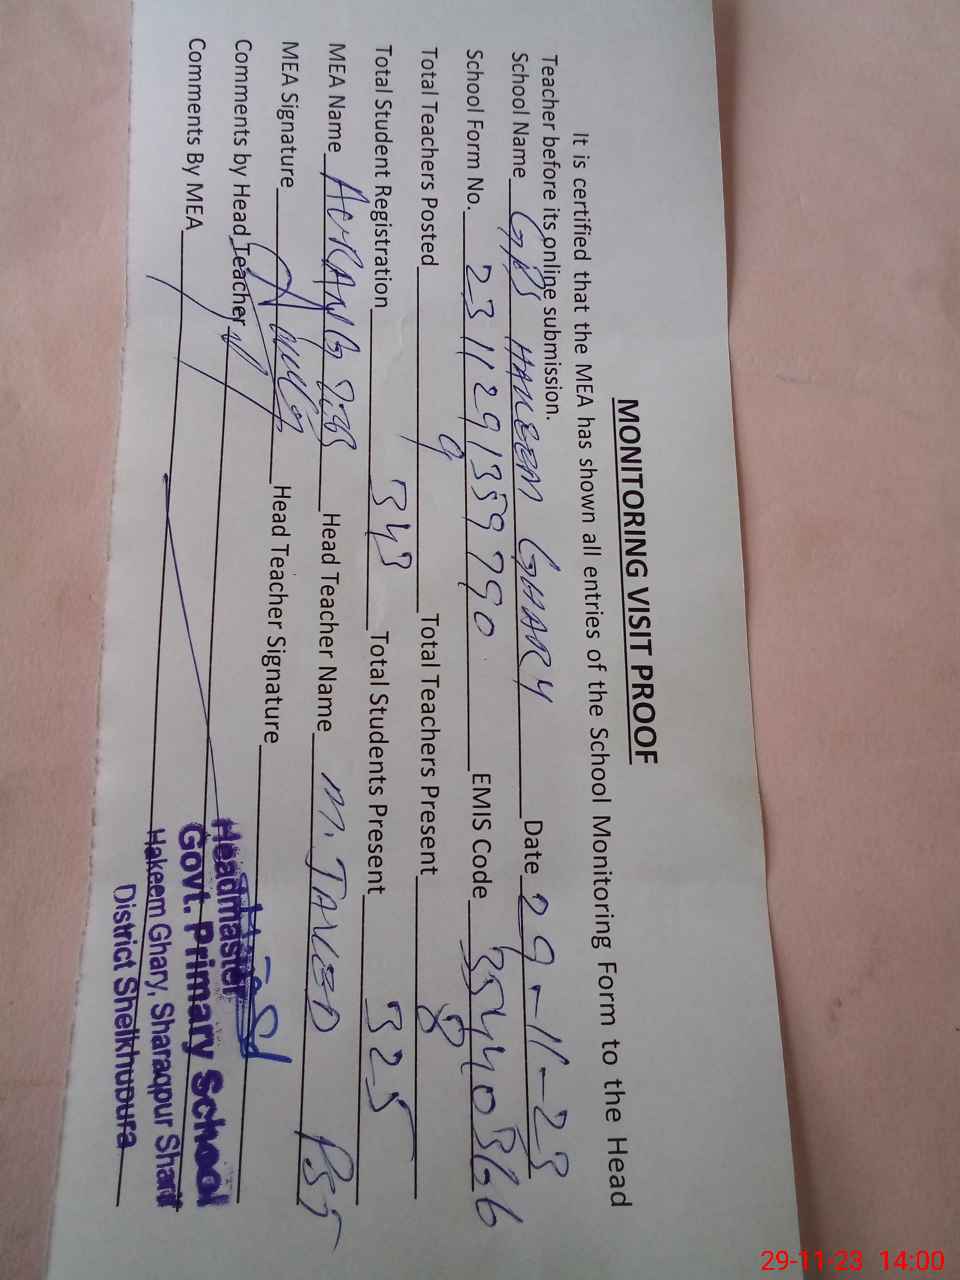 MONITORING VISIT PROOF
It is certified that the MEA has shown all entries of the School Monitoring Form to the Head
Teacher before its online submission.
School Name GPS HAKEEM GHARY Date 29-11-23
School Form No. 2311291359790 EMIS Code 35440366
Total Teachers Posted 9 Total Teachers Present 8
Total Student Registration 343 Total Students Present 325
MEA Name Head Teacher Name M. PST
MEA Signature Head Teacher Signature
Comments by Head Teacher
Comments By MEA
Headmaster
Govt. Primary School
Hakeem Ghary, Sharaqpur Sharif
District Sheikhupura
29-11-23 14:00